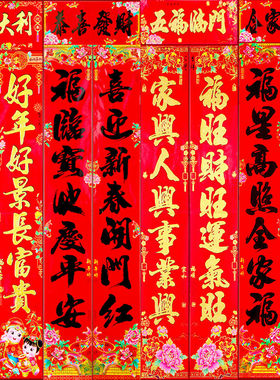 大利
恭喜發財
五福臨門
全家
好年好景長富貴
福臨寶地慶平安
喜迎新春開門紅
家興人興事業興
福旺財旺運氣旺
福星高照全家福